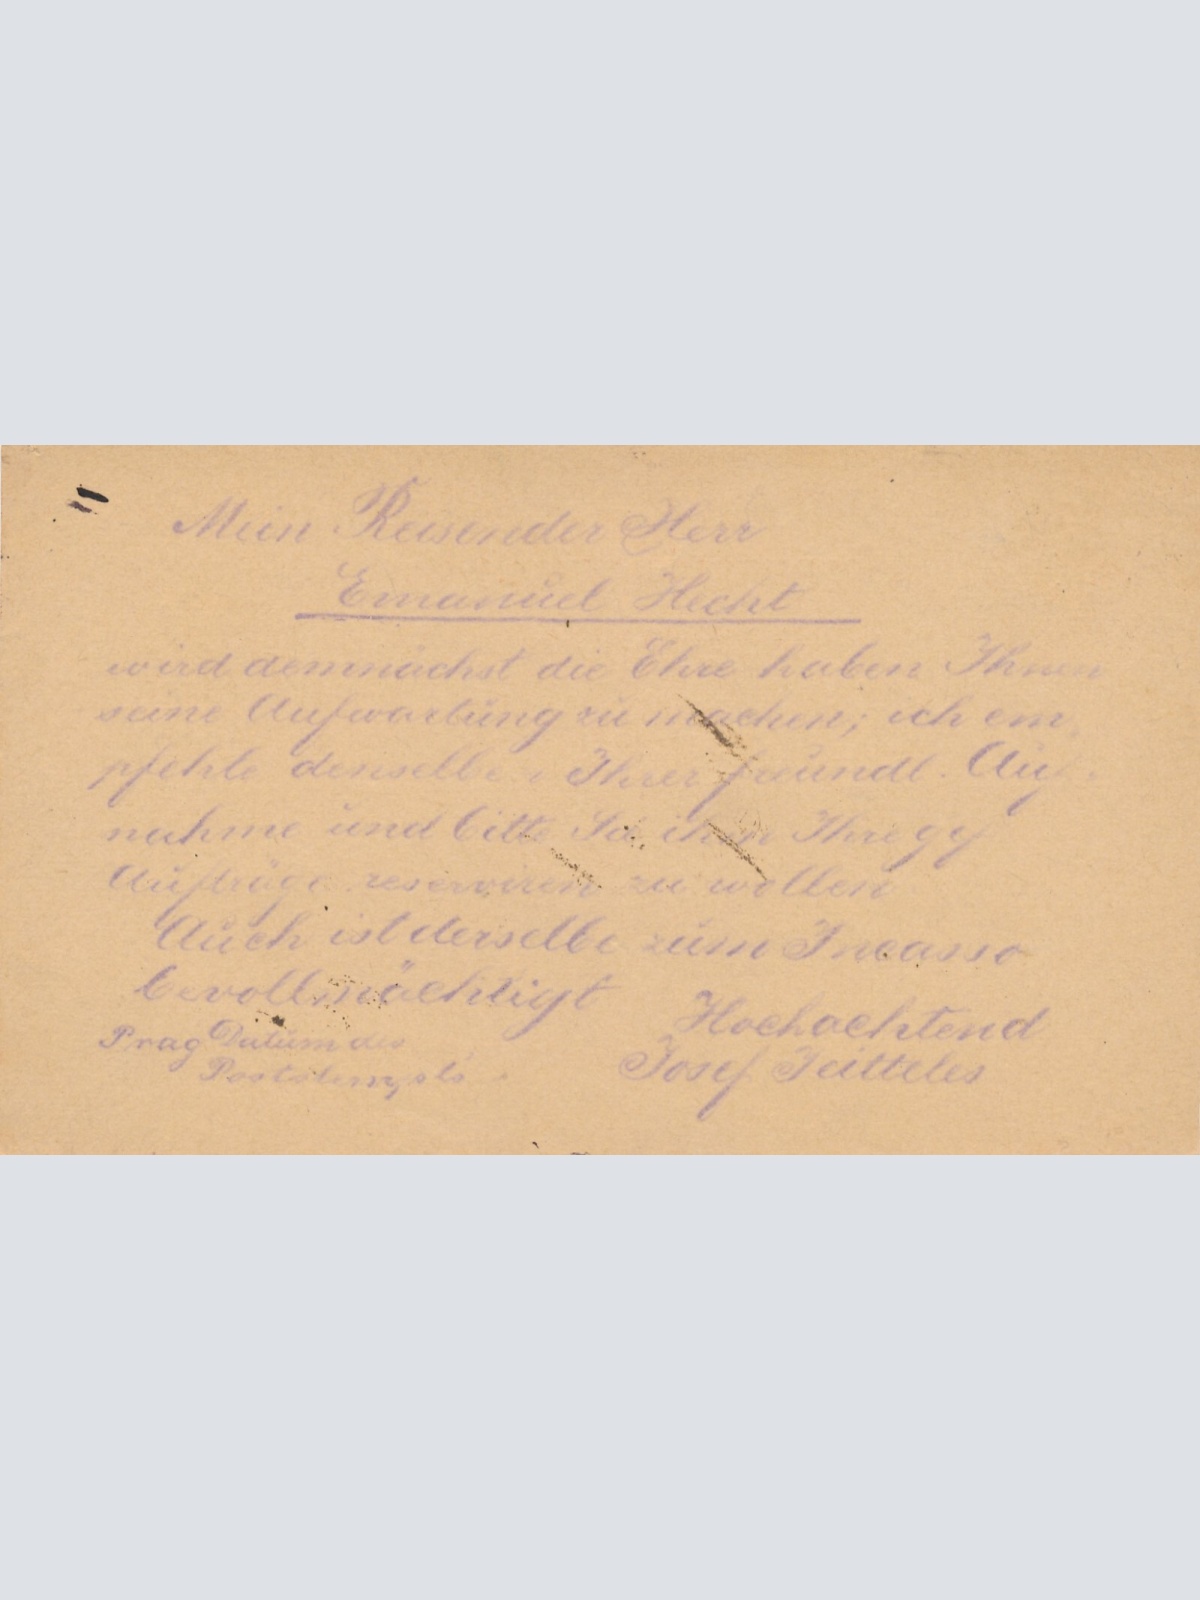 Mein Reisender Herr
Emanuel Hecht
wird demnächst die Ehre haben Ihnen
seine Aufwartung zu machen; ich em
pfehle denselben Ihrer freundl. Auf-
nahme und bitte Sie ihm Ihre gef
Aufträge reserviren zu wollen
Auch ist derselbe zum Incasso
bevollmächtigt
Hochachtend
Prag Datum des
Poststempels
Josef Teitteles